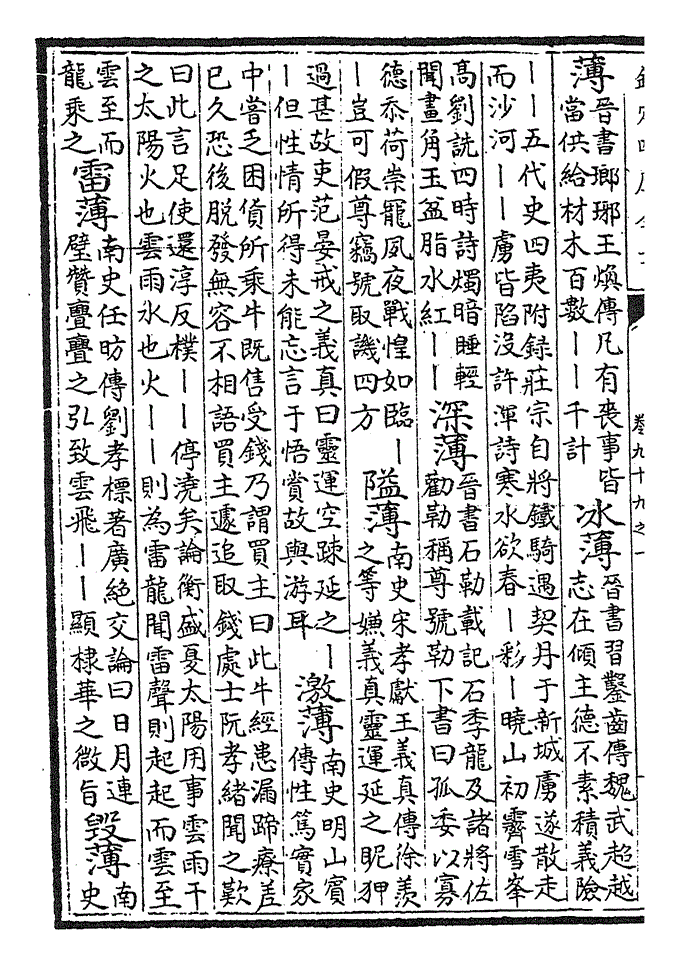 欽定四庫全書
卷九十九之一
薄晉書瑯琊王煥傳凡有喪事皆當供給材木百數——千計冰薄晉書習鑿齒傳魏武超越志在傾主德不素積義險
——五代史四夷附録莊宗自將鐵騎遇契丹于新城虜遂散走而沙河——虜皆陷沒許渾詩寒水欲春—彩—曉山初霽雪峯
高劉詵四時詩燭暗睡輕聞畫角玉盆脂水紅——深薄晉書石勒載記石季龍及諸將佐勸勒稱尊號勒下書曰孤委以寡
德忝荷崇寵夙夜戰惶如臨——豈可假尊竊號取譏四方隘薄南史宋孝獻王義真傳徐羨之等嫌義真靈運延之昵狎
過甚故吏范晏戒之義真曰靈運空疎延之——但性情所得未能忘言于悟賞故與游耳激薄南史明山賓傳性篤實家
中嘗乏困貨所乘牛既售受錢乃謂買主曰此牛經患漏蹄療差已久恐後脱發無容不相語買主遽追取錢處士阮孝緒聞之歎
曰此言足使還淳反樸——停澆矣論衡盛夏太陽用事雲雨干之太陽火也雲雨水也火——則為雷龍聞雷聲則起起而雲至
雲至而龍乘之雷薄南史任昉傳劉孝標著廣絶交論曰日月連璧贊亹亹之引致雲飛——顯棣華之微旨毀薄南史